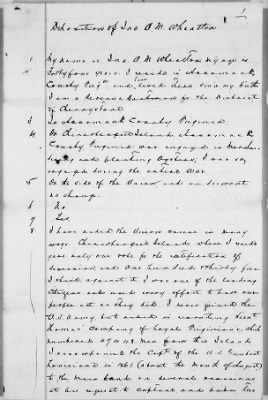 1
Deposition of Jno. A. M. Whealton
1 My name is Jno. A. M. Whealton my age is
Forty four years. I reside in Accomack
County Virga and have lived since my birth
I am a Revenue for the District
of Cherrystone
3 In Accomack County Virginia
4 On Chincoteague Island Accomack
County Virginia was engaged in
and planting Oysters, I was so
engaged during the entire War.
5 On the side of the Union, and
no change.
6 No
7 Yes
8 I have aided the Union cause in many
ways. Chincoteague Island where I reside
gave only one vote for the ratification of
secession, and One hundred & thirty five
I think against it I was one of the leading
Citizens and used every effort to have our
people act as they did. I never joined the
U.S. Army, but aided in
Company of Loyal Virginians, which
numbered 47 or 48 men from this Island
I accompanied the Capt. of the U.S. Gunboat
in 1861 (about the month of August)
to the Main land on several occasions
at his request to capture and burn